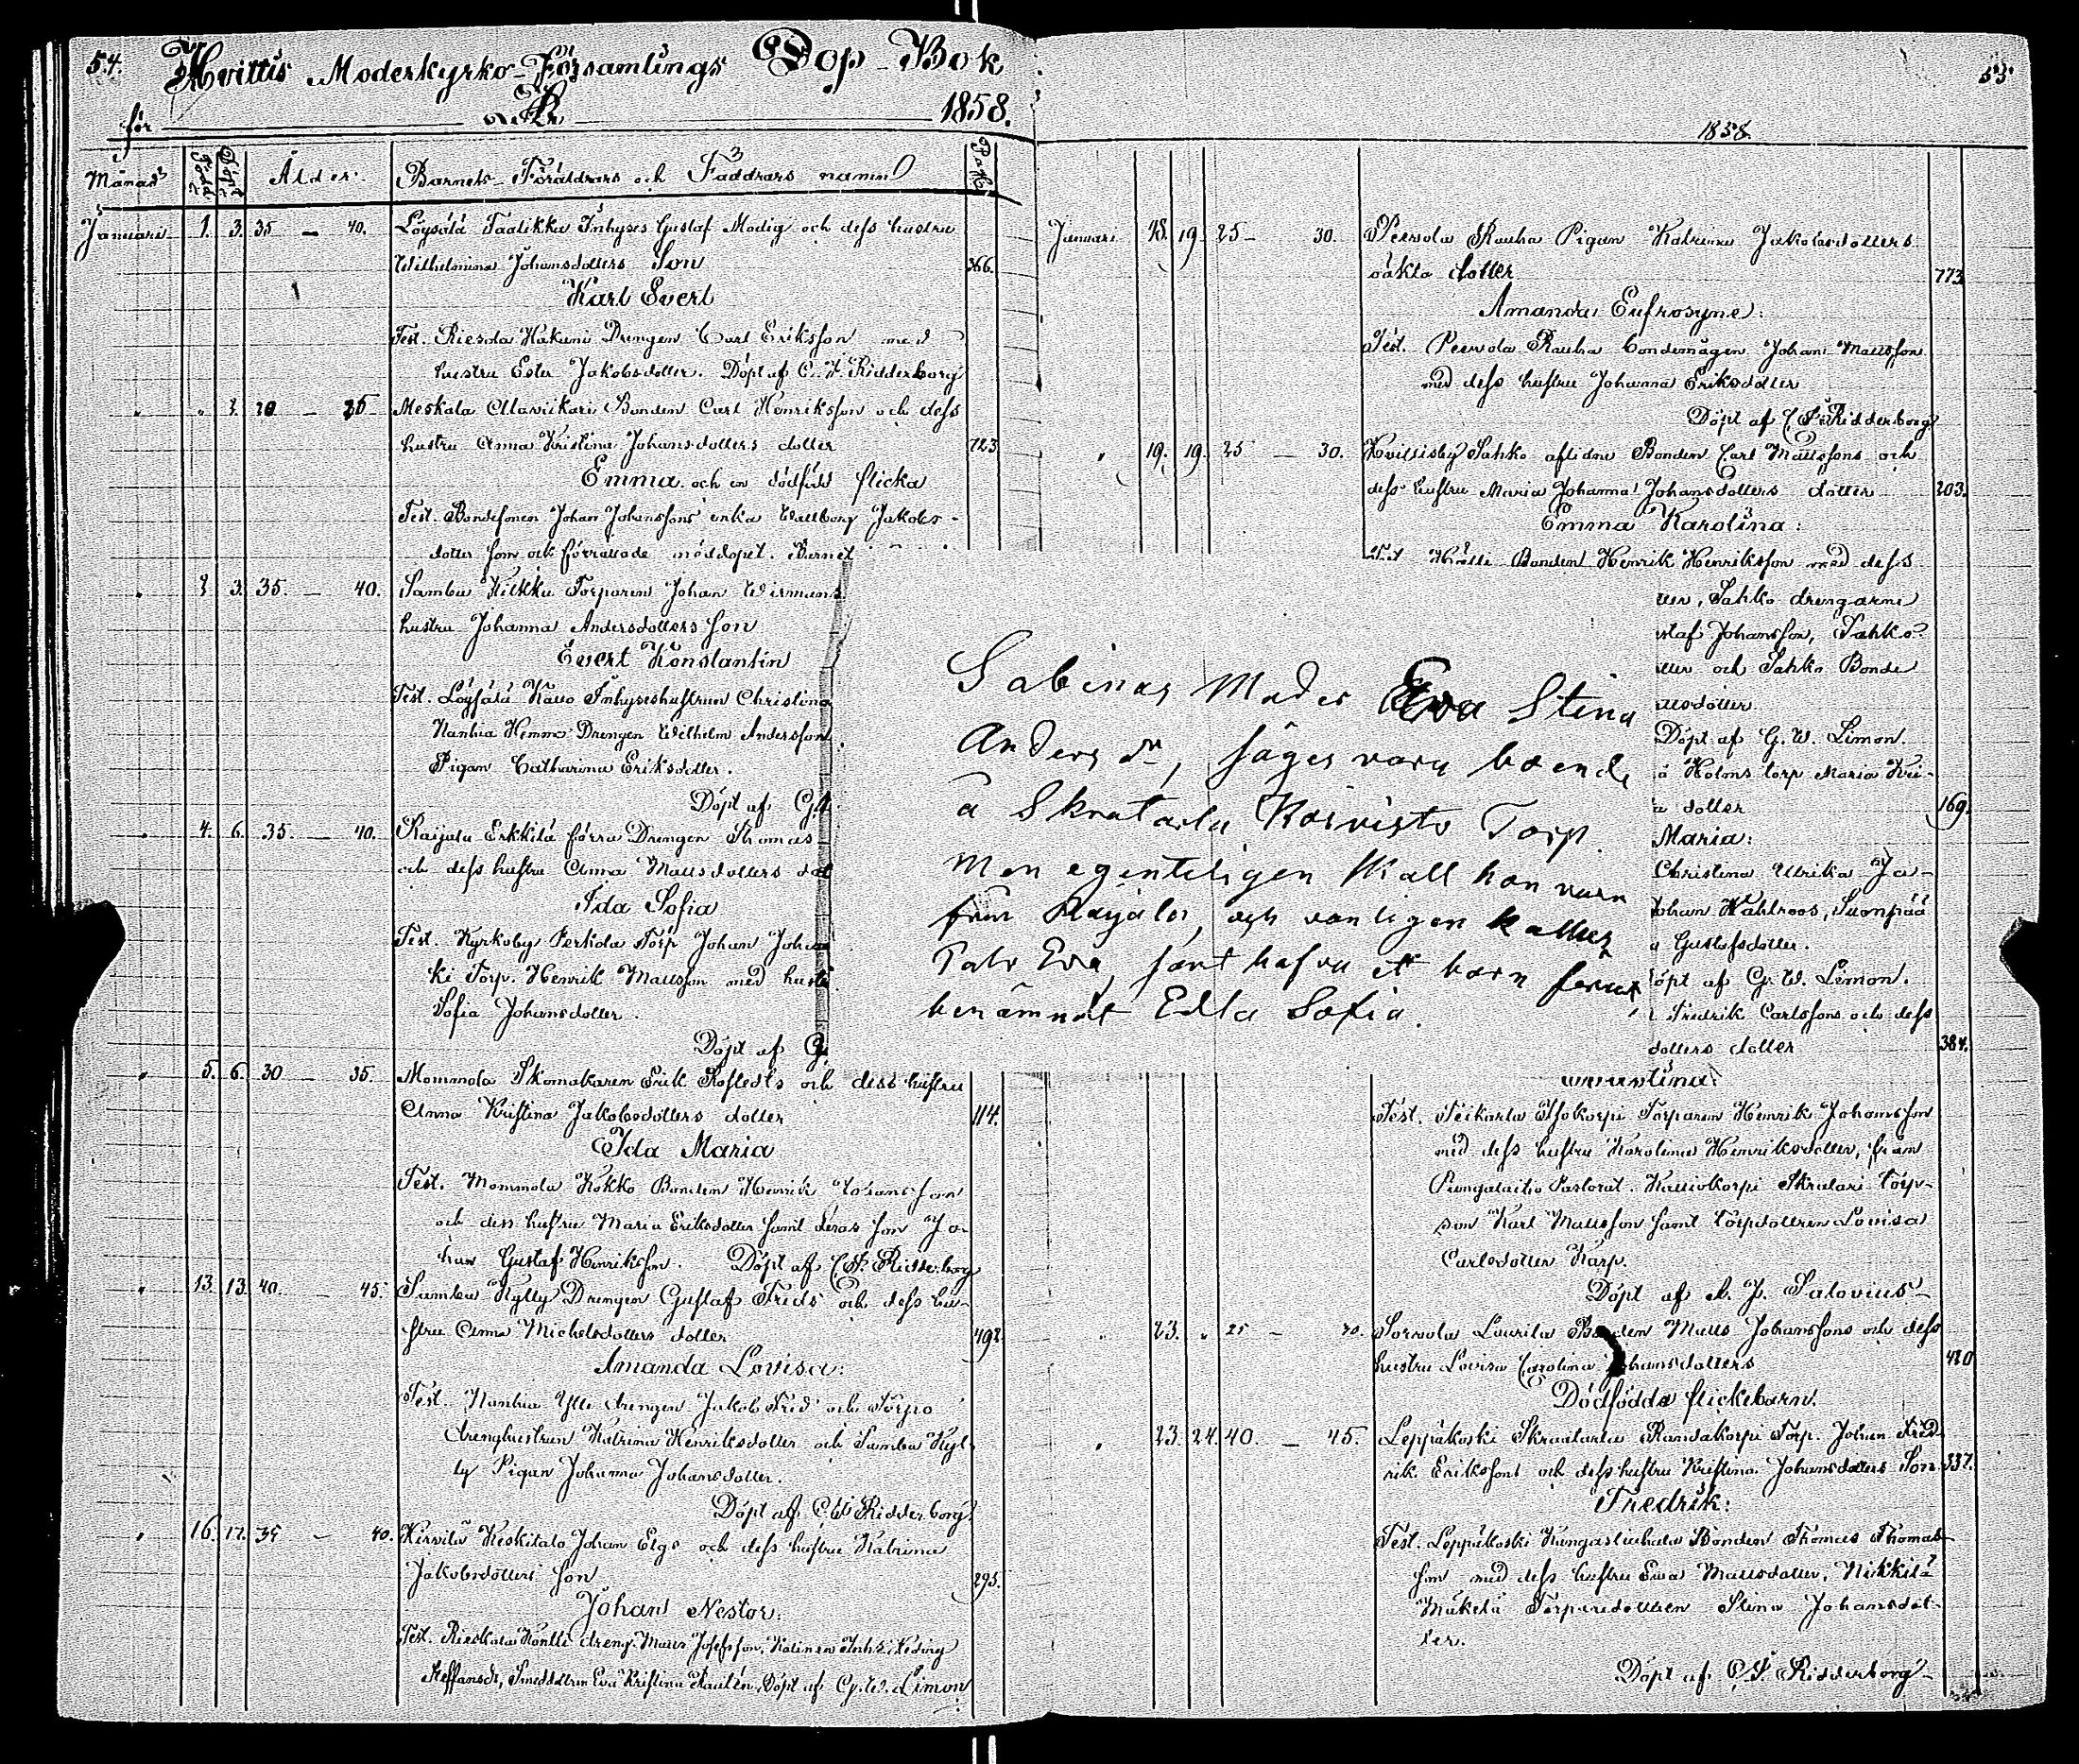 54.
Hvittis Moderkyrko-Församlings Dop-Bok
för År 1858.
Månad Född Döpt Ålder. Barnets Föräldrars och Faddrars namn Pag.
Januari 1. 3. 35 — 40. Löysälä Taatikka Inhyses Gustaf Modig och dess hustru
Wilhelmina Johansdotters Son 366.
Karl Evert
Test. Riesola Hakuni Drengen Carl Eriksson med
hustru Ester Jakobsdotter. Döpt af C. F. Ridderborg
" " 3. 20 — 25 Meskala Alaviikari Bonden Carl Henriksson och dess
hustru Anna Kristina Johansdotters dotter 723
Emma och en dödfödd flicka
Test. Bondesonen Johan Johanssons enka Wallborg Jakobs-
dotter som ock förrättade nöddopet. Barnet
" 3. 35. — 40. Sambu Kilkku Torparen Johan Widmans
hustru Johanna Andersdotters son
Evert Konstantin
Test. Löysälä Kauo Inhyseshustrun Christina
Nanhia Hemmo Drengen Wilhelm Andersson
Pigan Catharina Eriksdotter.
Döpt af G.
" 4. 6. 35. — 40. Raijala Erkkilä förra Drengen Thomas
och dess hustru Anna Mattsdotters dot
Ida Sofia
Test. Kyrkoby Perkola Torp Johan Johan
ki Torp. Henrik Mattsson med hustr
Sofia Johansdotter.
Döpt af G.
" 5. 6. 30 — 35. Mommola Skomakaren Erik Rostedts och dess hustru
Anna Kristina Jakobsdotters dotter 114.
Ida Maria
Test. Mommola Kokko Bonden Henrik Johansson
och dess hustru Maria Eriksdotter samt deras son Jo-
han Gustaf Henriksson. Döpt af C. F. Ridderborg
" 13. 13. 40. — 45. Sambu Kylly Drengen Gustaf Frids och dess hu-
stru Anna Michelsdotters dotter 492.
Amanda Lovisa:
Test. Nanhia Ylli drengen Jakob Frid och Torpo
drenghustrun Katrina Henriksdotter och Sambu Kyl-
ly Pigan Johanna Johansdotter.
Döpt af C. F. Ridderborg.
" 16. 17. 35 — 40. Kirvilä Keskitalo Johan Elgs och dess hustru Katrina
Jakobsdotters son 295.
Johan Nestor.
Test. Rieskala Konlli dreng. Matts Josefsson,
Steffansdr, Eva Kristina Döpt af G. W. Limon
55
1858.
Januari 18. 19. 25 — 30. Peevola Rauha Pigan Katrina Jakobsdotters
oäkta dotter 773
Amanda Eufrosyne:
Test. Peevola Rauha bondemågen Johan Mattsson
med dess hustru Johanna Eriksdotter
Döpt af C. F. Ridderborg
" 19. 19. 25 — 30. Kvitsisby Sahko aflidne Bonden Carl Mattssons och
dess hustru Maria Johanna Johansdotters dotter 203.
Emma Karolina:
Test. Bonden Henrik Henriksson med dess
ter, Sahko drengarne
staf Johansson, Sahko
tter och Sahko Bonde
attsdotter.
Döpt af G. W. Limon.
a Holons torp Maria Kri-
a dotter 169.
Maria:
Christina Ulrika Ja-
Johan Kahlroos, Suonpää
a Gustafsdotter.
öpt af G. W. Limon.
Fredrik Carlssons och dess
dotters dotter 384.
Sabinas Moder Eva Stina
Anders dr, säges vara boende
å Skratarla Koivisto Torp.
men egenteligen skall hon vara
från Raijala, och vanligen kallas
Palo Eva, samt hafva ett barn förut
benämndt Edla Sofia.
Test. Teikarla Isokorpi Torparen Henrik Johansson
med dess hustru Karolina Henriksdotter, från
Pungalaitio Pastorat. Kalliokorpi Skralari torp-
son Karl Mattsson samt torpdottren Lovisa
Carlsdotter Karp.
Döpt af A. J. Salovius
" 23. " 25 — 30. Sorvola Laurila Bonden Matts Johanssons och dess
hustru Lovisa Carolina Johansdotters 480
Dödfödda flickebarn.
" 23. 24. 40. — 45. Leppäkoski Skraatarla Randakorpi Torp. Johan Fred-
rik Erikssons och dess hustru Kristina Johansdotters Son 337.
Fredrik:
Test. Leppäkoski Kangasliuhala Bonden Thomas Thomas-
son med dess hustru Eva Mattsdotter, Nikkilä
Mäkelä Torparedottren Stina Johansdot-
ter.
Döpt af C. F. Ridderborg